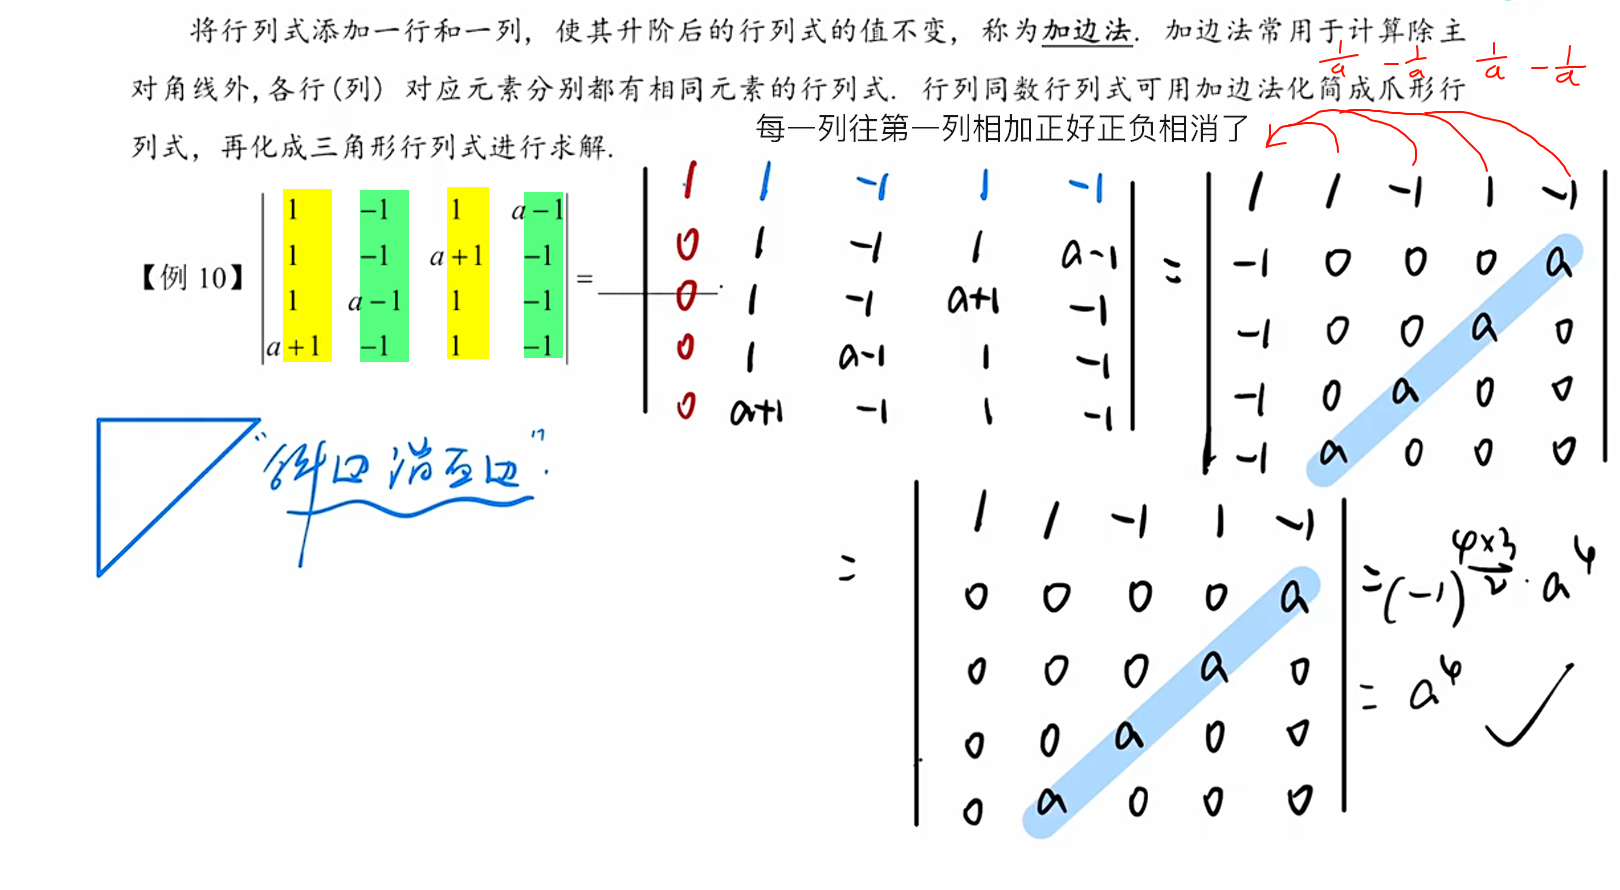 将行列式添加一行和一列，使其升阶后的行列式的值不变，称为加边法．加边法常用于计算除主
对角线外,各行(列) 对应元素分别都有相同元素的行列式．行列同数行列式可用加边法化简成爪形行
列式，再化成三角形行列式进行求解.
1/a -1/a 1/a -1/a
每一列往第一列相加正好正负相消了
【例 10】
1 -1 1 a-1
1 -1 a+1 -1
1 a-1 1 -1
a+1 -1 1 -1
= ______.
1 1 -1 1 -1
0 1 -1 1 a-1
0 1 -1 a+1 -1
0 1 a-1 1 -1
0 a+1 -1 1 -1
=
1 1 -1 1 -1
-1 0 0 0 a
-1 0 0 a 0
-1 0 a 0 0
-1 a 0 0 0
“斜边消直边”.
=
1 1 -1 1 -1
0 0 0 0 a
0 0 0 a 0
0 0 a 0 0
0 a 0 0 0
=(-1)^(4×3/2)·a^4
= a^4